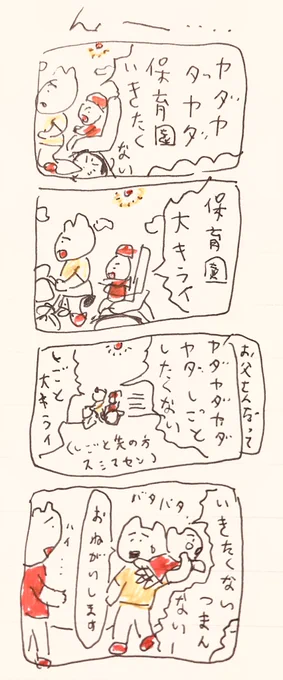 んー‥‥
ヤダヤ
ダッ
ヤダ
保育園
いきたく
ない
保育園
大キライ
お父さんだって
ヤダヤダヤダ
ヤダ しごと
したくない
しごと
大キライ
(しごと先の方
スミマセン)
いきたくない
つまん
ないー
バタバタ
おねがいします
ハイ…